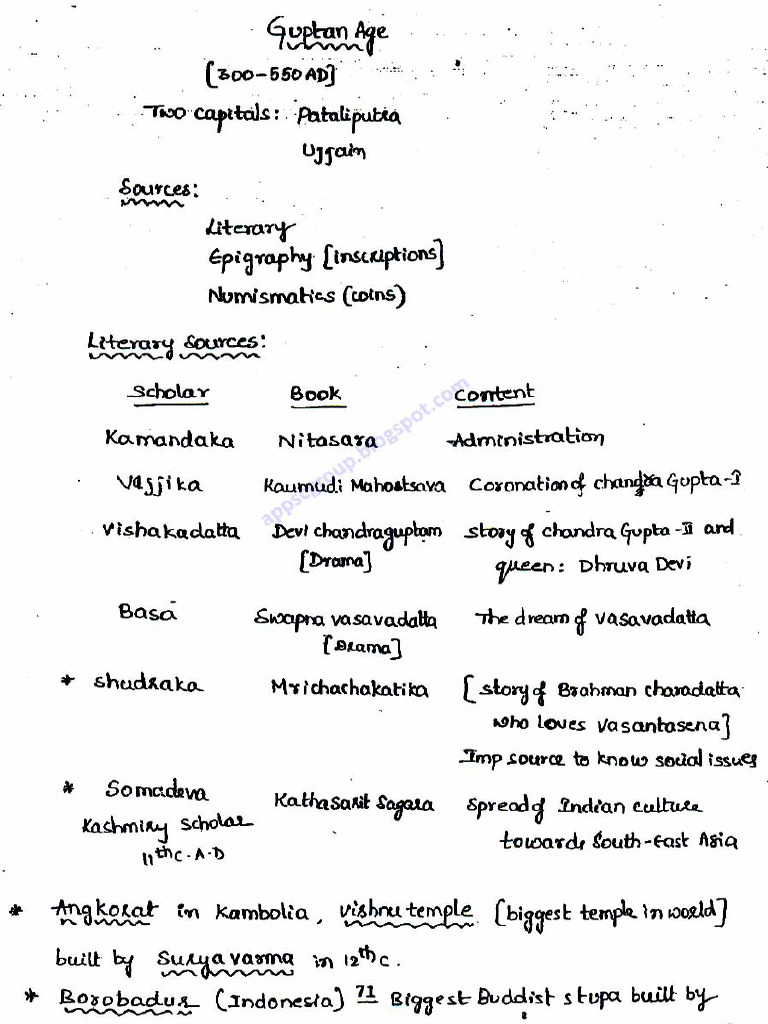 Guptan Age
[300-550 AD]
Two capitals: Pataliputra
Ujjain
Sources:
Literary
Epigraphy [inscriptions]
Numismatics (coins)
Literary Sources:
Scholar Book Content
Kamandaka Nitasara Administration
Vajjika Kaumudi Mahostsava Coronation of chandra Gupta-I
Vishakadatta Devi chandraguptam story of chandra Gupta-II and
[Drama] queen: Dhruva Devi
Basa Swapna vasavadatta The dream of vasavadatta
[Drama]
* Shudraka Mrichachakatika [story of Brahman charadatta
who loves Vasantasena]
Imp source to know social issues
* Somadeva KathaSarit Sagara Spread of Indian culture
Kashmiry Scholar towards South-East Asia
11th C.A.D
* Angkorat in Kambolia, Vishnu temple [biggest temple in world]
built by Suryavarma in 12th C.
* Borobadur (Indonesia) 71 Biggest Buddist stupa built by
appscgroup.blogspot.com